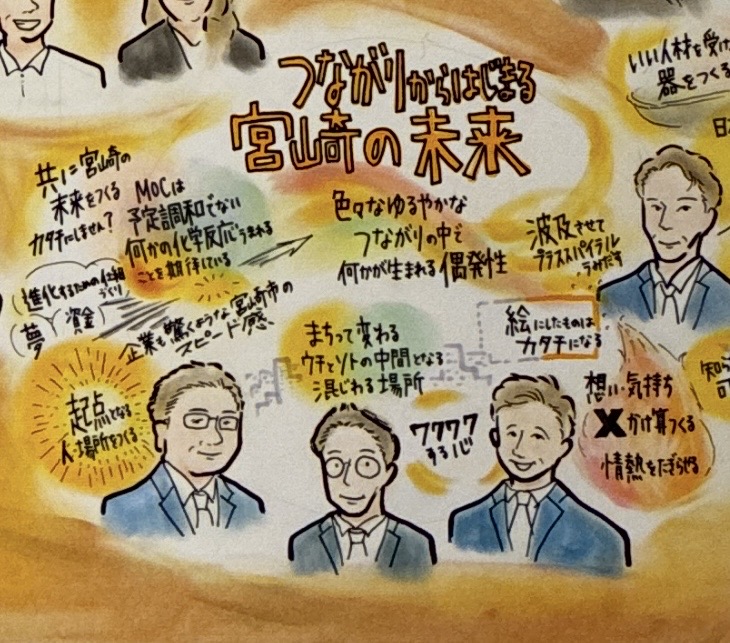 つながりからはじまる
宮崎の未来
いい人材を受け
器をつくる
共に宮崎の
未来をつくる
カタチにしません？
MOCは
予定調和でない
何かの化学反応うまれる
ことを期待している
色々なゆるやかな
つながりの中で
何かが生まれる偶発性
波及させて
プラススパイラル
うみだす
進化するための仕組
づくり
夢
資金
企業も驚くような宮崎市の
スピード感
まちって変わる
ウチとソトの中間となる
混じわる場所
絵にしたものは
カタチになる
起点となる
人・場所をつくる
ワクワク
する心
想い・気持ち
×かけ算つくる
情熱をたぎらせる
知ら